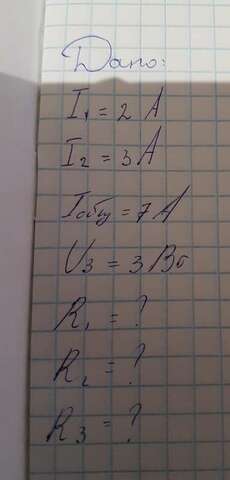 Дано:
I₁ = 2 А
I₂ = 3 А
Iобщ = 7 А
U3 = 3 Вб
R₁ = ?
R₂ = ?
R3 = ?